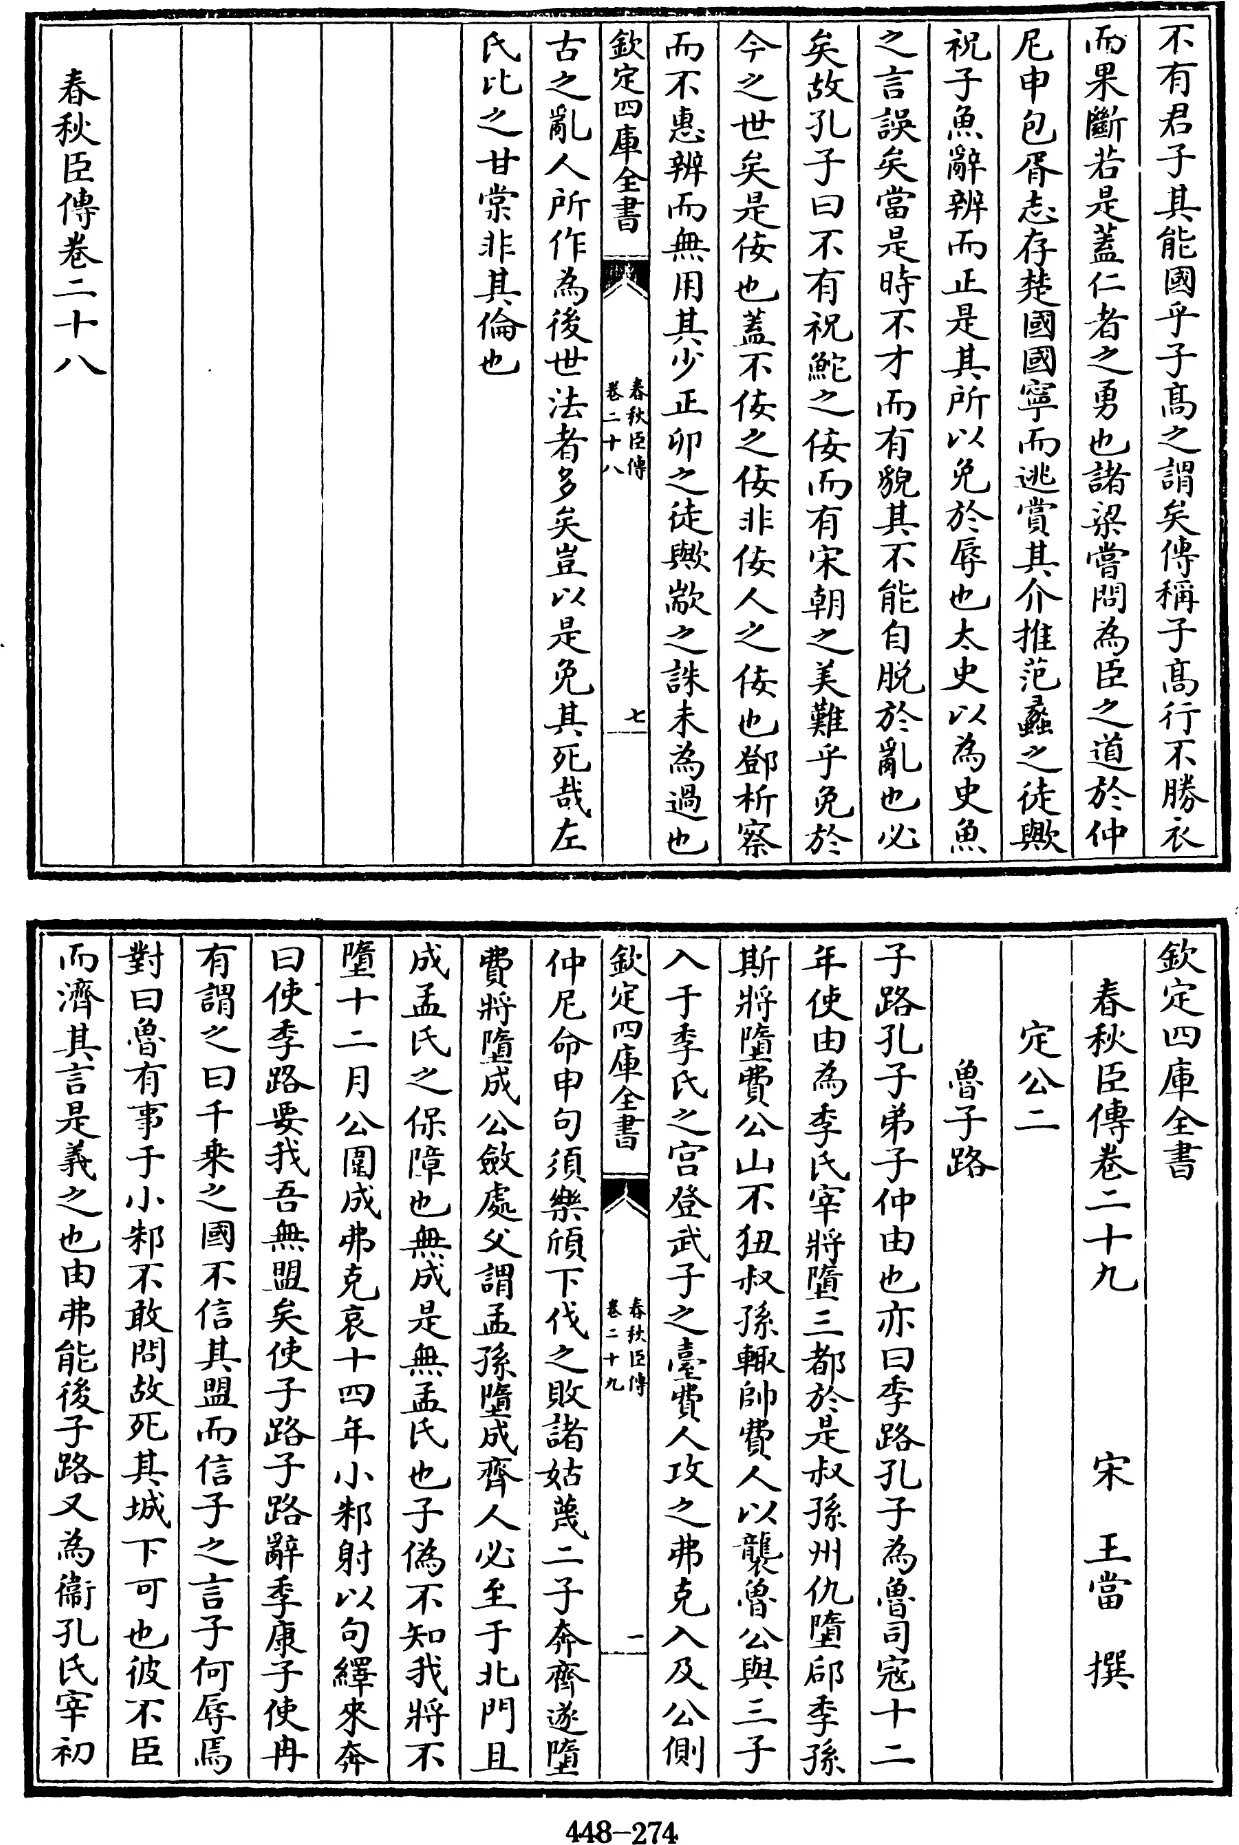 不有君子其能國乎子髙之謂矣傳稱子髙行不勝衣
而果斷若是蓋仁者之勇也諸梁嘗問為臣之道於仲
尼申包胥志存楚國國寧而逃賞其介推范蠡之徒歟
祝子魚辭辨而正是其所以免於辱也太史以為史魚
之言誤矣當是時不才而有貌其不能自脱於亂也必
矣故孔子曰不有祝鮀之佞而有宋朝之美難乎免於
今之世矣是佞也蓋不佞之佞非佞人之佞也鄧析察
而不惠辨而無用其少正卯之徒歟歂之誅未為過也
欽定四庫全書
春秋臣傳
卷二十八
七
古之亂人所作為後世法者多矣豈以是免其死哉左
氏比之甘棠非其倫也
春秋臣傳卷二十八
欽定四庫全書
春秋臣傳卷二十九 宋 王當 撰
定公二
魯子路
子路孔子弟子仲由也亦曰季路孔子為魯司寇十二
年使由為季氏宰將墮三都於是叔孫州仇墮郈季孫
斯將墮費公山不狃叔孫輙帥費人以襲魯公與三子
入于季氏之宫登武子之臺費人攻之弗克入及公側
欽定四庫全書
春秋臣傳
卷二十九
一
仲尼命申句須樂頎下伐之敗諸姑蔑二子奔齊遂墮
費將墮成公斂處父謂孟孫墮成齊人必至于北門且
成孟氏之保障也無成是無孟氏也子偽不知我將不
墮十二月公圍成弗克哀十四年小邾射以句繹來奔
曰使季路要我吾無盟矣使子路子路辭季康子使冉
有謂之曰千乗之國不信其盟而信子之言子何辱焉
對曰魯有事于小邾不敢問故死其城下可也彼不臣
而濟其言是義之也由弗能後子路又為衞孔氏宰初
448-274